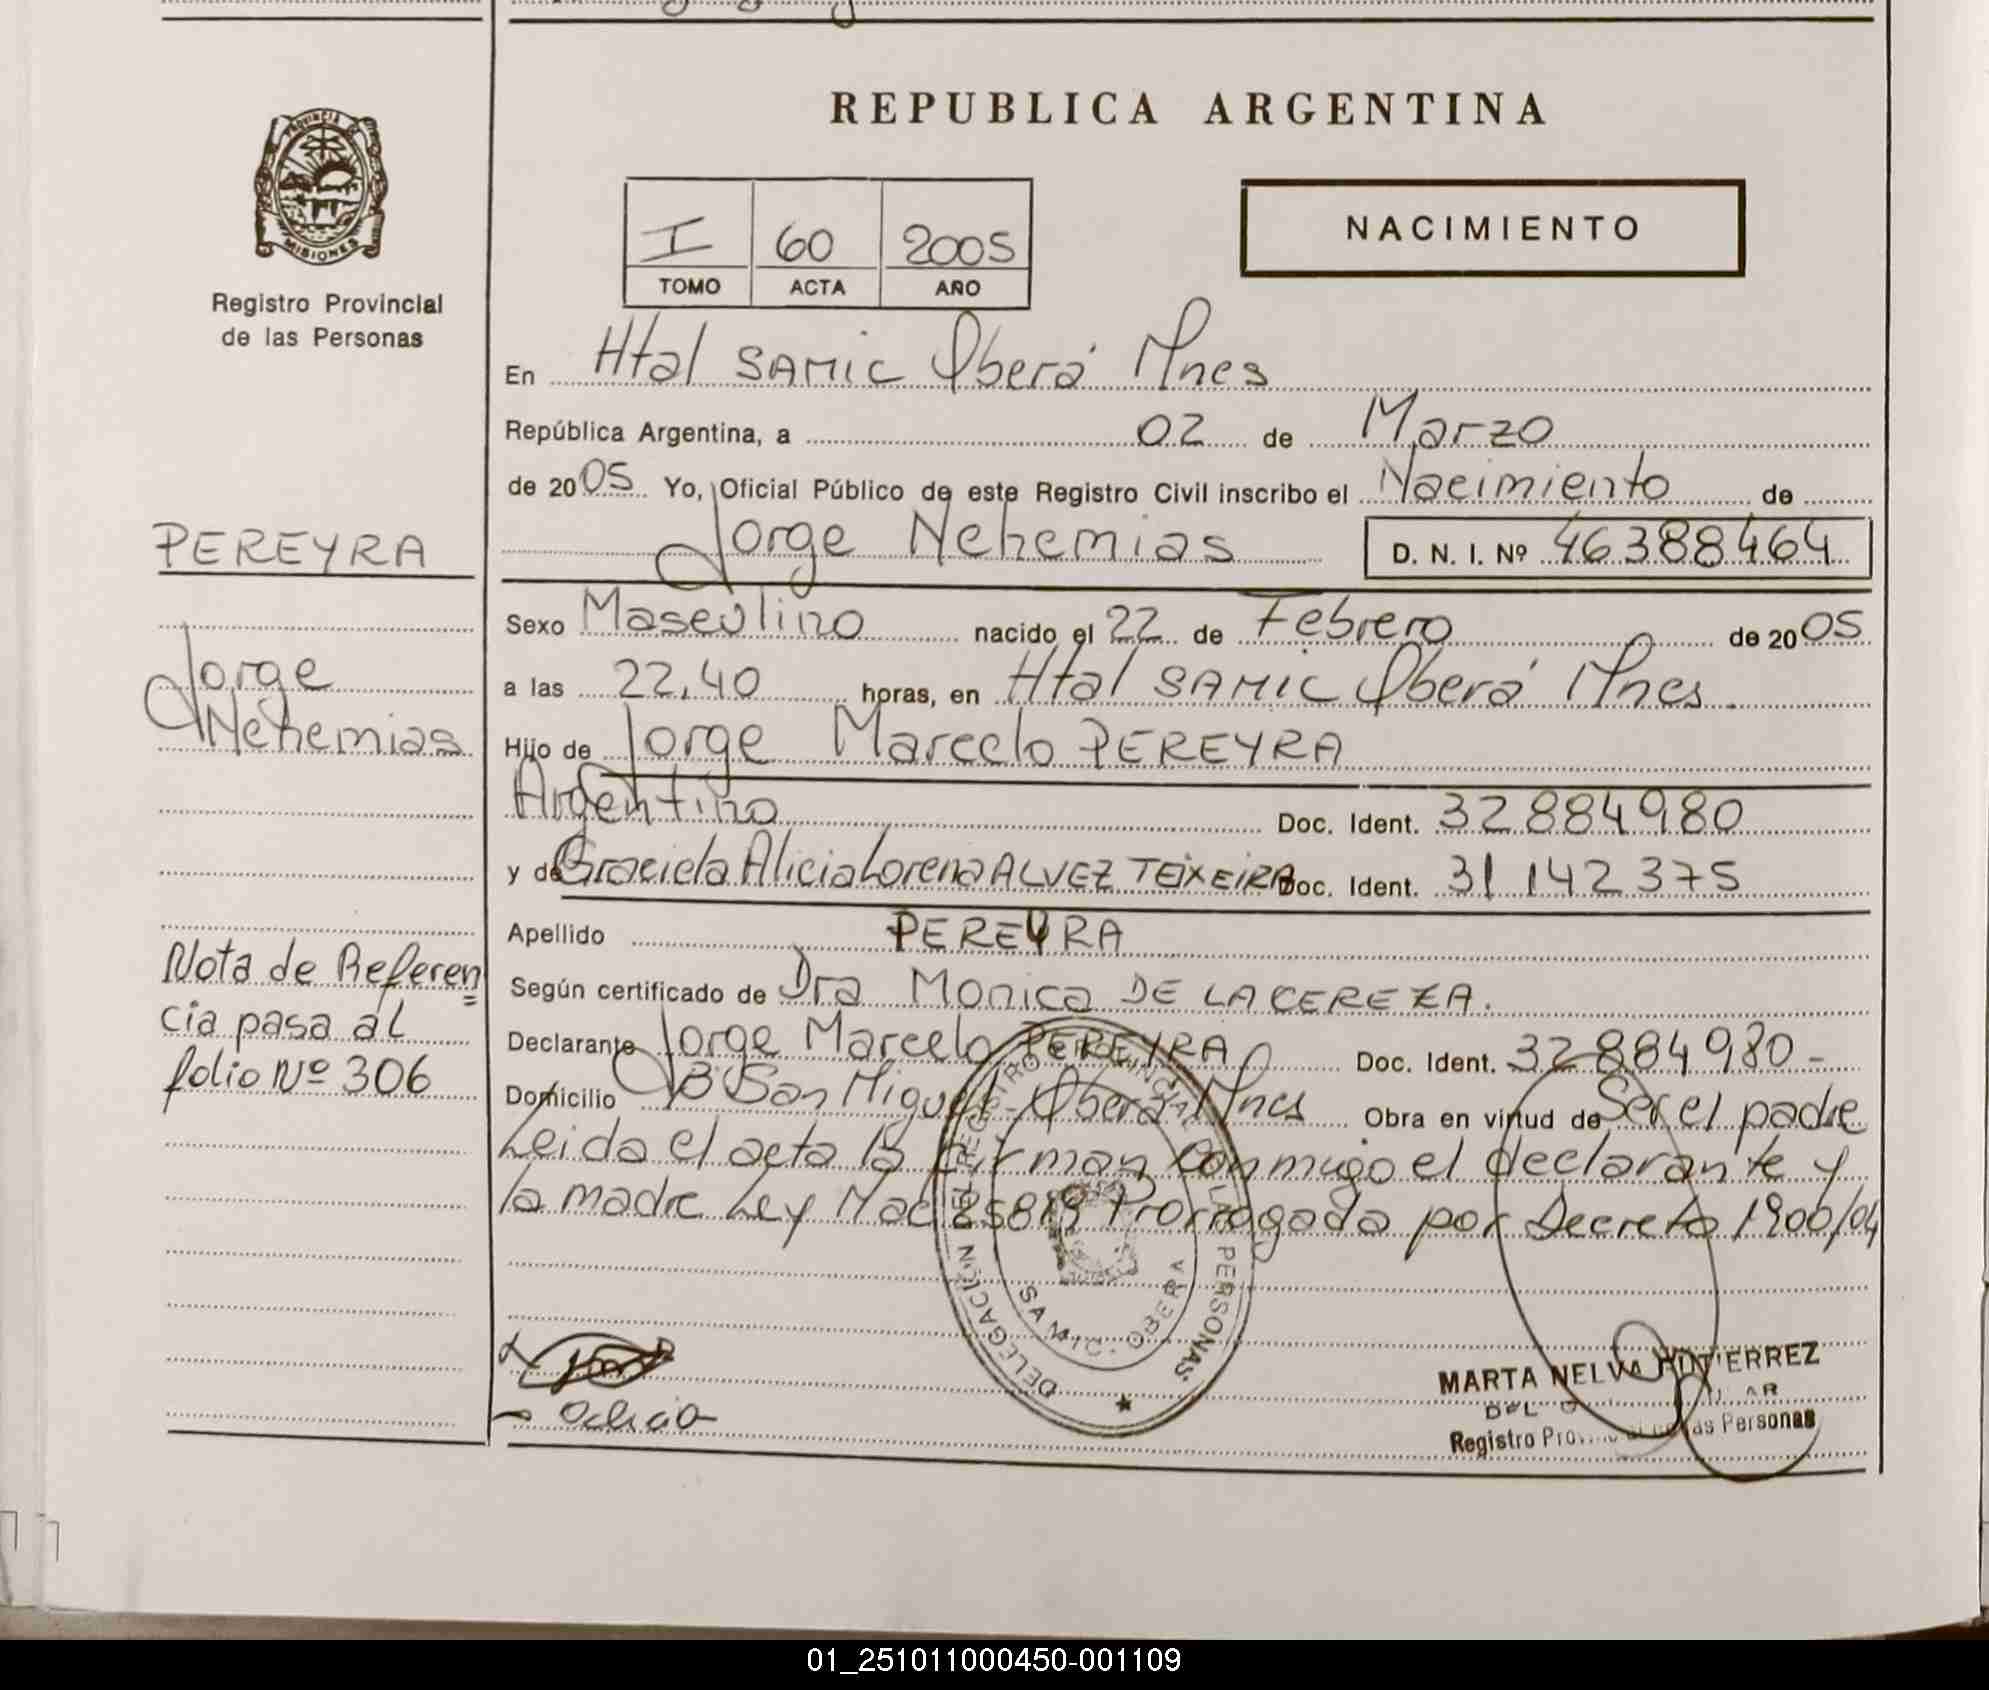 PROVINCIA DE
MISIONES
Registro Provincial
de las Personas
PEREYRA
Jorge
Nehemias
Nota de Referen
cia pasa al
folio Nº 306
REPUBLICA ARGENTINA
I 60 2005
TOMO ACTA AÑO
NACIMIENTO
En Htal SAMIC Oberá Mnes
República Argentina, a 02 de Marzo
de 2005 Yo, Oficial Público de este Registro Civil inscribo el Nacimiento de
Jorge Nehemias D. N. I. Nº 46388464
Sexo Masculino nacido el 22 de Febrero de 2005
a las 22,40 horas, en Htal SAMIC Oberá Mnes.
Hijo de Jorge Marcelo PEREYRA
Argentino Doc. Ident. 32884980
y de Graciela Alicia Lorena ALVEZ TEIXEIRA Doc. Ident. 31142375
Apellido PEREYRA
Según certificado de Dra Monica DE LA CEREZA.
Declarante Jorge Marcelo PEREYRA Doc. Ident. 32884980-
Domicilio Bº San Miguel - Oberá Mnes Obra en virtud de Ser el padre
Leida el acta la firman conmigo el declarante y
la madre Ley Nac 25819 Prorrogada por Decreto 1900/04
DELEGACION DEL REGISTRO PROVINCIAL DE LAS PERSONAS
SAMIC - OBERA
MARTA NELVA GUTIERREZ
Registro Provincial de las Personas
01_251011000450-001109